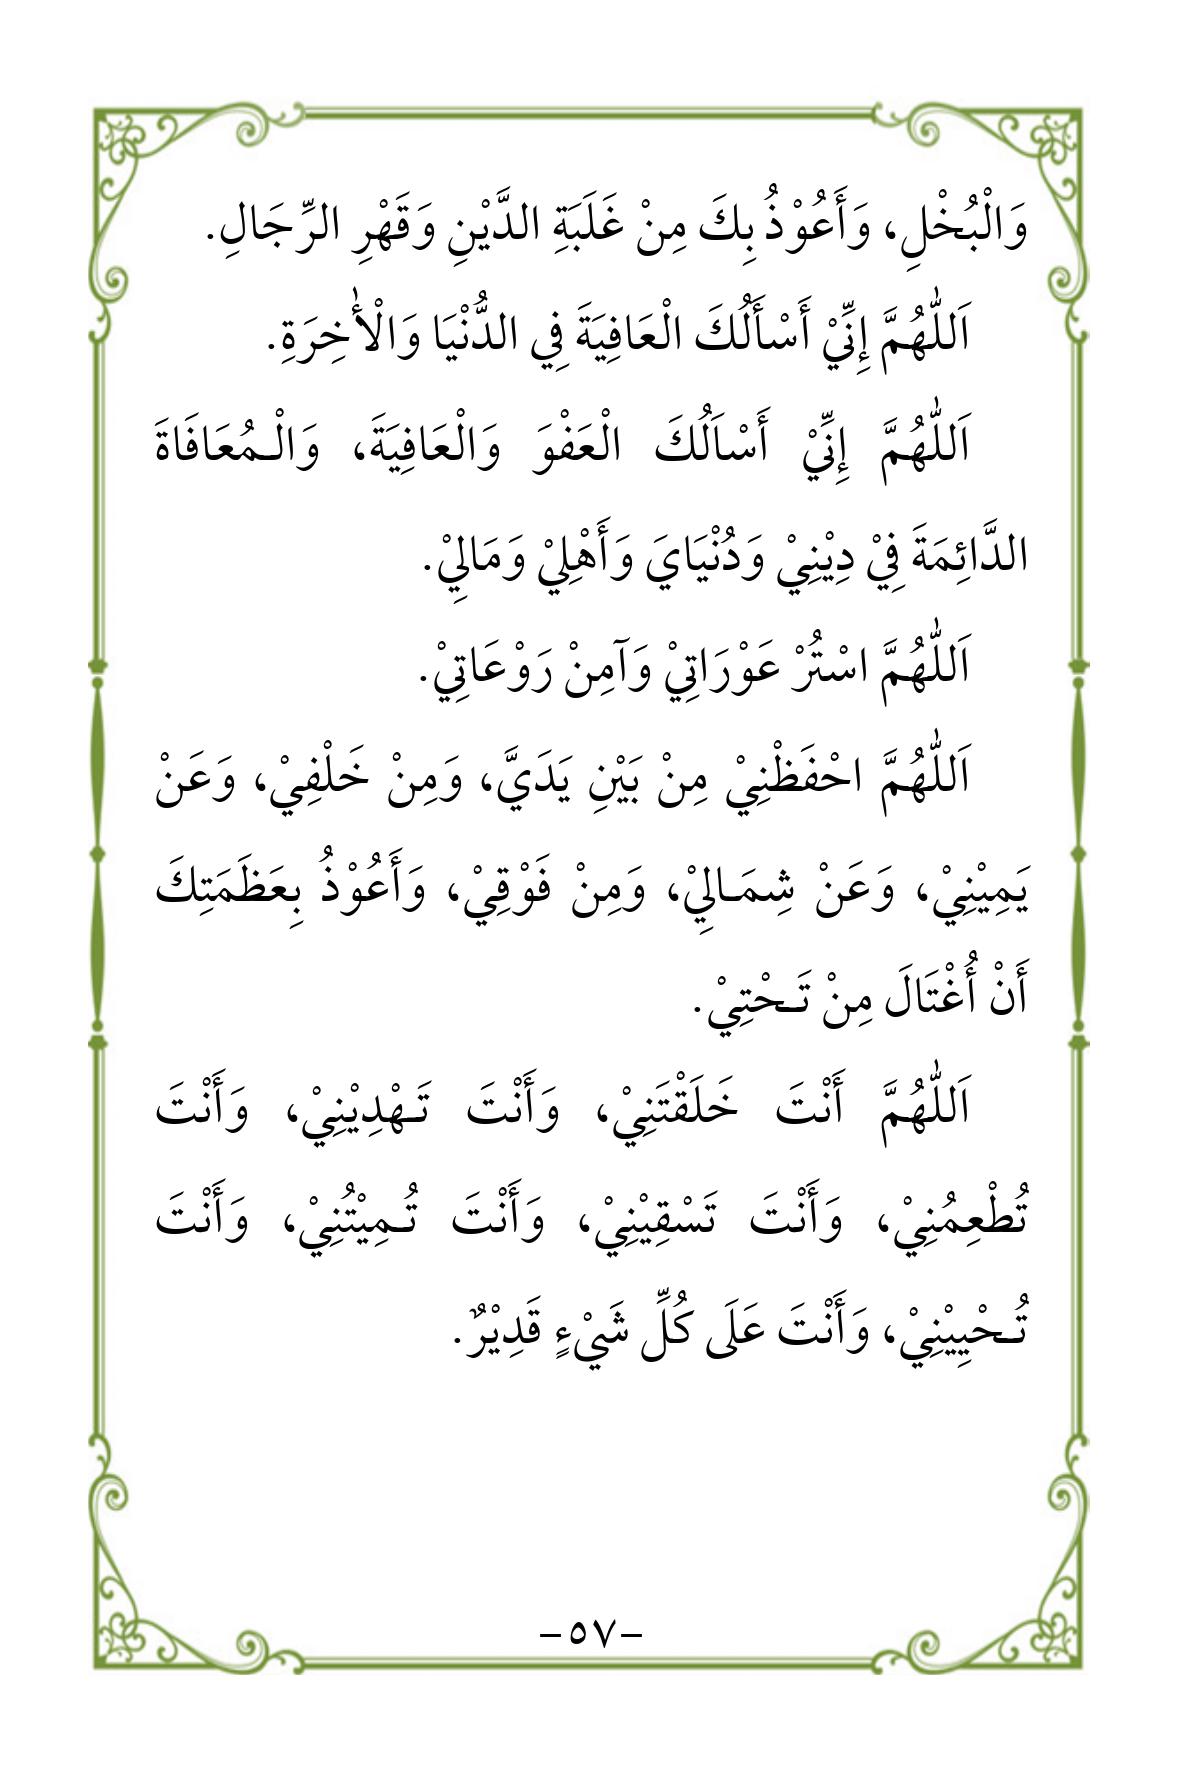 وَالْبُخْلِ، وَأَعُوْذُ بِكَ مِنْ غَلَبَةِ الدَّيْنِ وَقَهْرِ الرِّجَالِ.
اَللّٰهُمَّ إِنِّيْ أَسْأَلُكَ الْعَافِيَةَ فِي الدُّنْيَا وَالْأٰخِرَةِ.
اَللّٰهُمَّ إِنِّيْ أَسْاَلُكَ الْعَفْوَ وَالْعَافِيَةَ، وَالْـمُعَافَاةَ
الدَّائِمَةَ فِيْ دِيْنِيْ وَدُنْيَايَ وَأَهْلِيْ وَمَالِيْ.
اَللّٰهُمَّ اسْتُرْ عَوْرَاتِيْ وَآمِنْ رَوْعَاتِيْ.
اَللّٰهُمَّ احْفَظْنِيْ مِنْ بَيْنِ يَدَيَّ، وَمِنْ خَلْفِيْ، وَعَنْ
يَمِيْنِيْ، وَعَنْ شِمَـالِيْ، وَمِنْ فَوْقِيْ، وَأَعُوْذُ بِعَظَمَتِكَ
أَنْ أُغْتَالَ مِنْ تَـحْتِيْ.
اَللّٰهُمَّ أَنْتَ خَلَقْتَنِيْ، وَأَنْتَ تَـهْدِيْنِيْ، وَأَنْتَ
تُطْعِمُنِيْ، وَأَنْتَ تَسْقِيْنِيْ، وَأَنْتَ تُـمِيْتُنِيْ، وَأَنْتَ
تُـحْيِيْنِيْ، وَأَنْتَ عَلَى كُلِّ شَيْءٍ قَدِيْرٌ.
–٥٧–